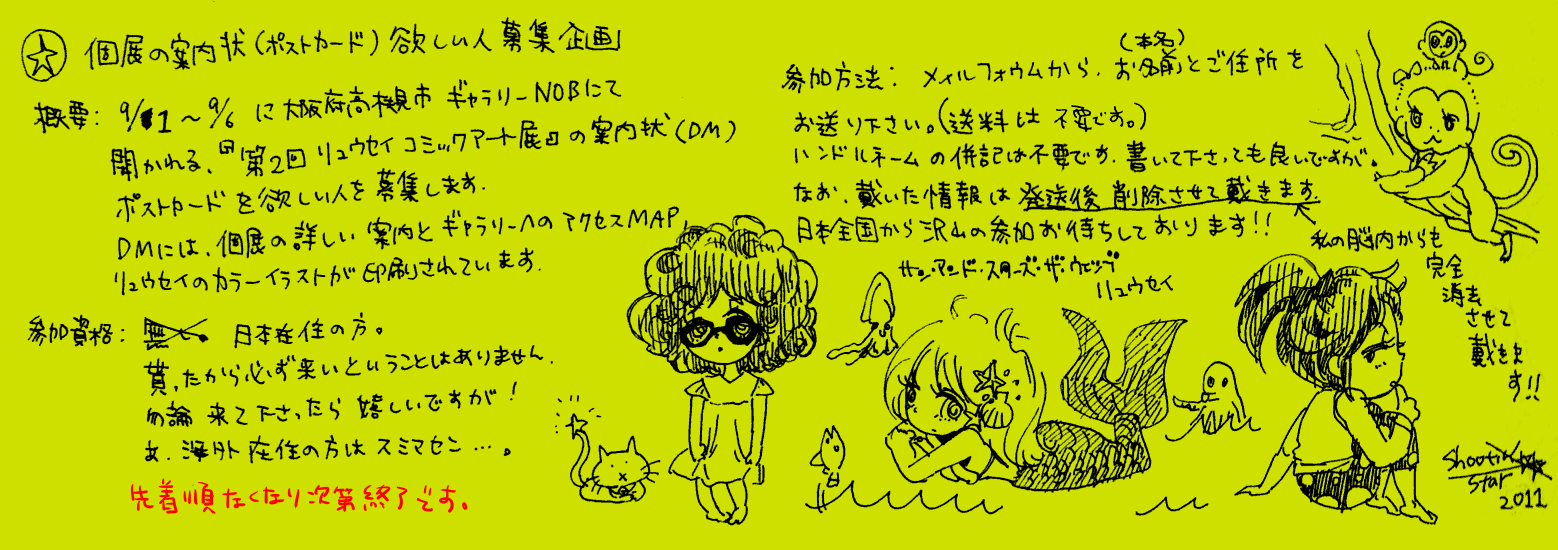 個展の案内状(ポストカード)欲しい人募集企画
概要: 9/1〜9/6 に大阪府高槻市 ギャラリーNOBにて
開かれる、『第2回 リュウセイ コミックアート展』の案内状(DM)
ポストカードを欲しい人を募集します.
DMには、個展の詳しい案内とギャラリーへのアクセスMAP
リュウセイのカラーイラストが印刷されています.
参加資格: 日本在住の方。
貰ったから必ず来いということはありません.
勿論 来て下さったら 嬉しいですが!
あ. 海外在住の方はスミマセン…。
先着順なくなり次第終了です。
参加方法: メィルフォウムから、お名前とご住所を
(本名)
お送り下さい。(送料は 不要です。)
ハンドルネームの併記は不要です. 書いて下さっても良いですが。
なお、戴いた情報は発送後 削除させて戴きます
日本全国から沢山の参加お待ちしております!!
サン・アンド・スターズ・ザ・ウェッブ
リュウセイ
私の脳内からも
完全
消去
させて
戴きま
す!!
Shooting
Star
2011